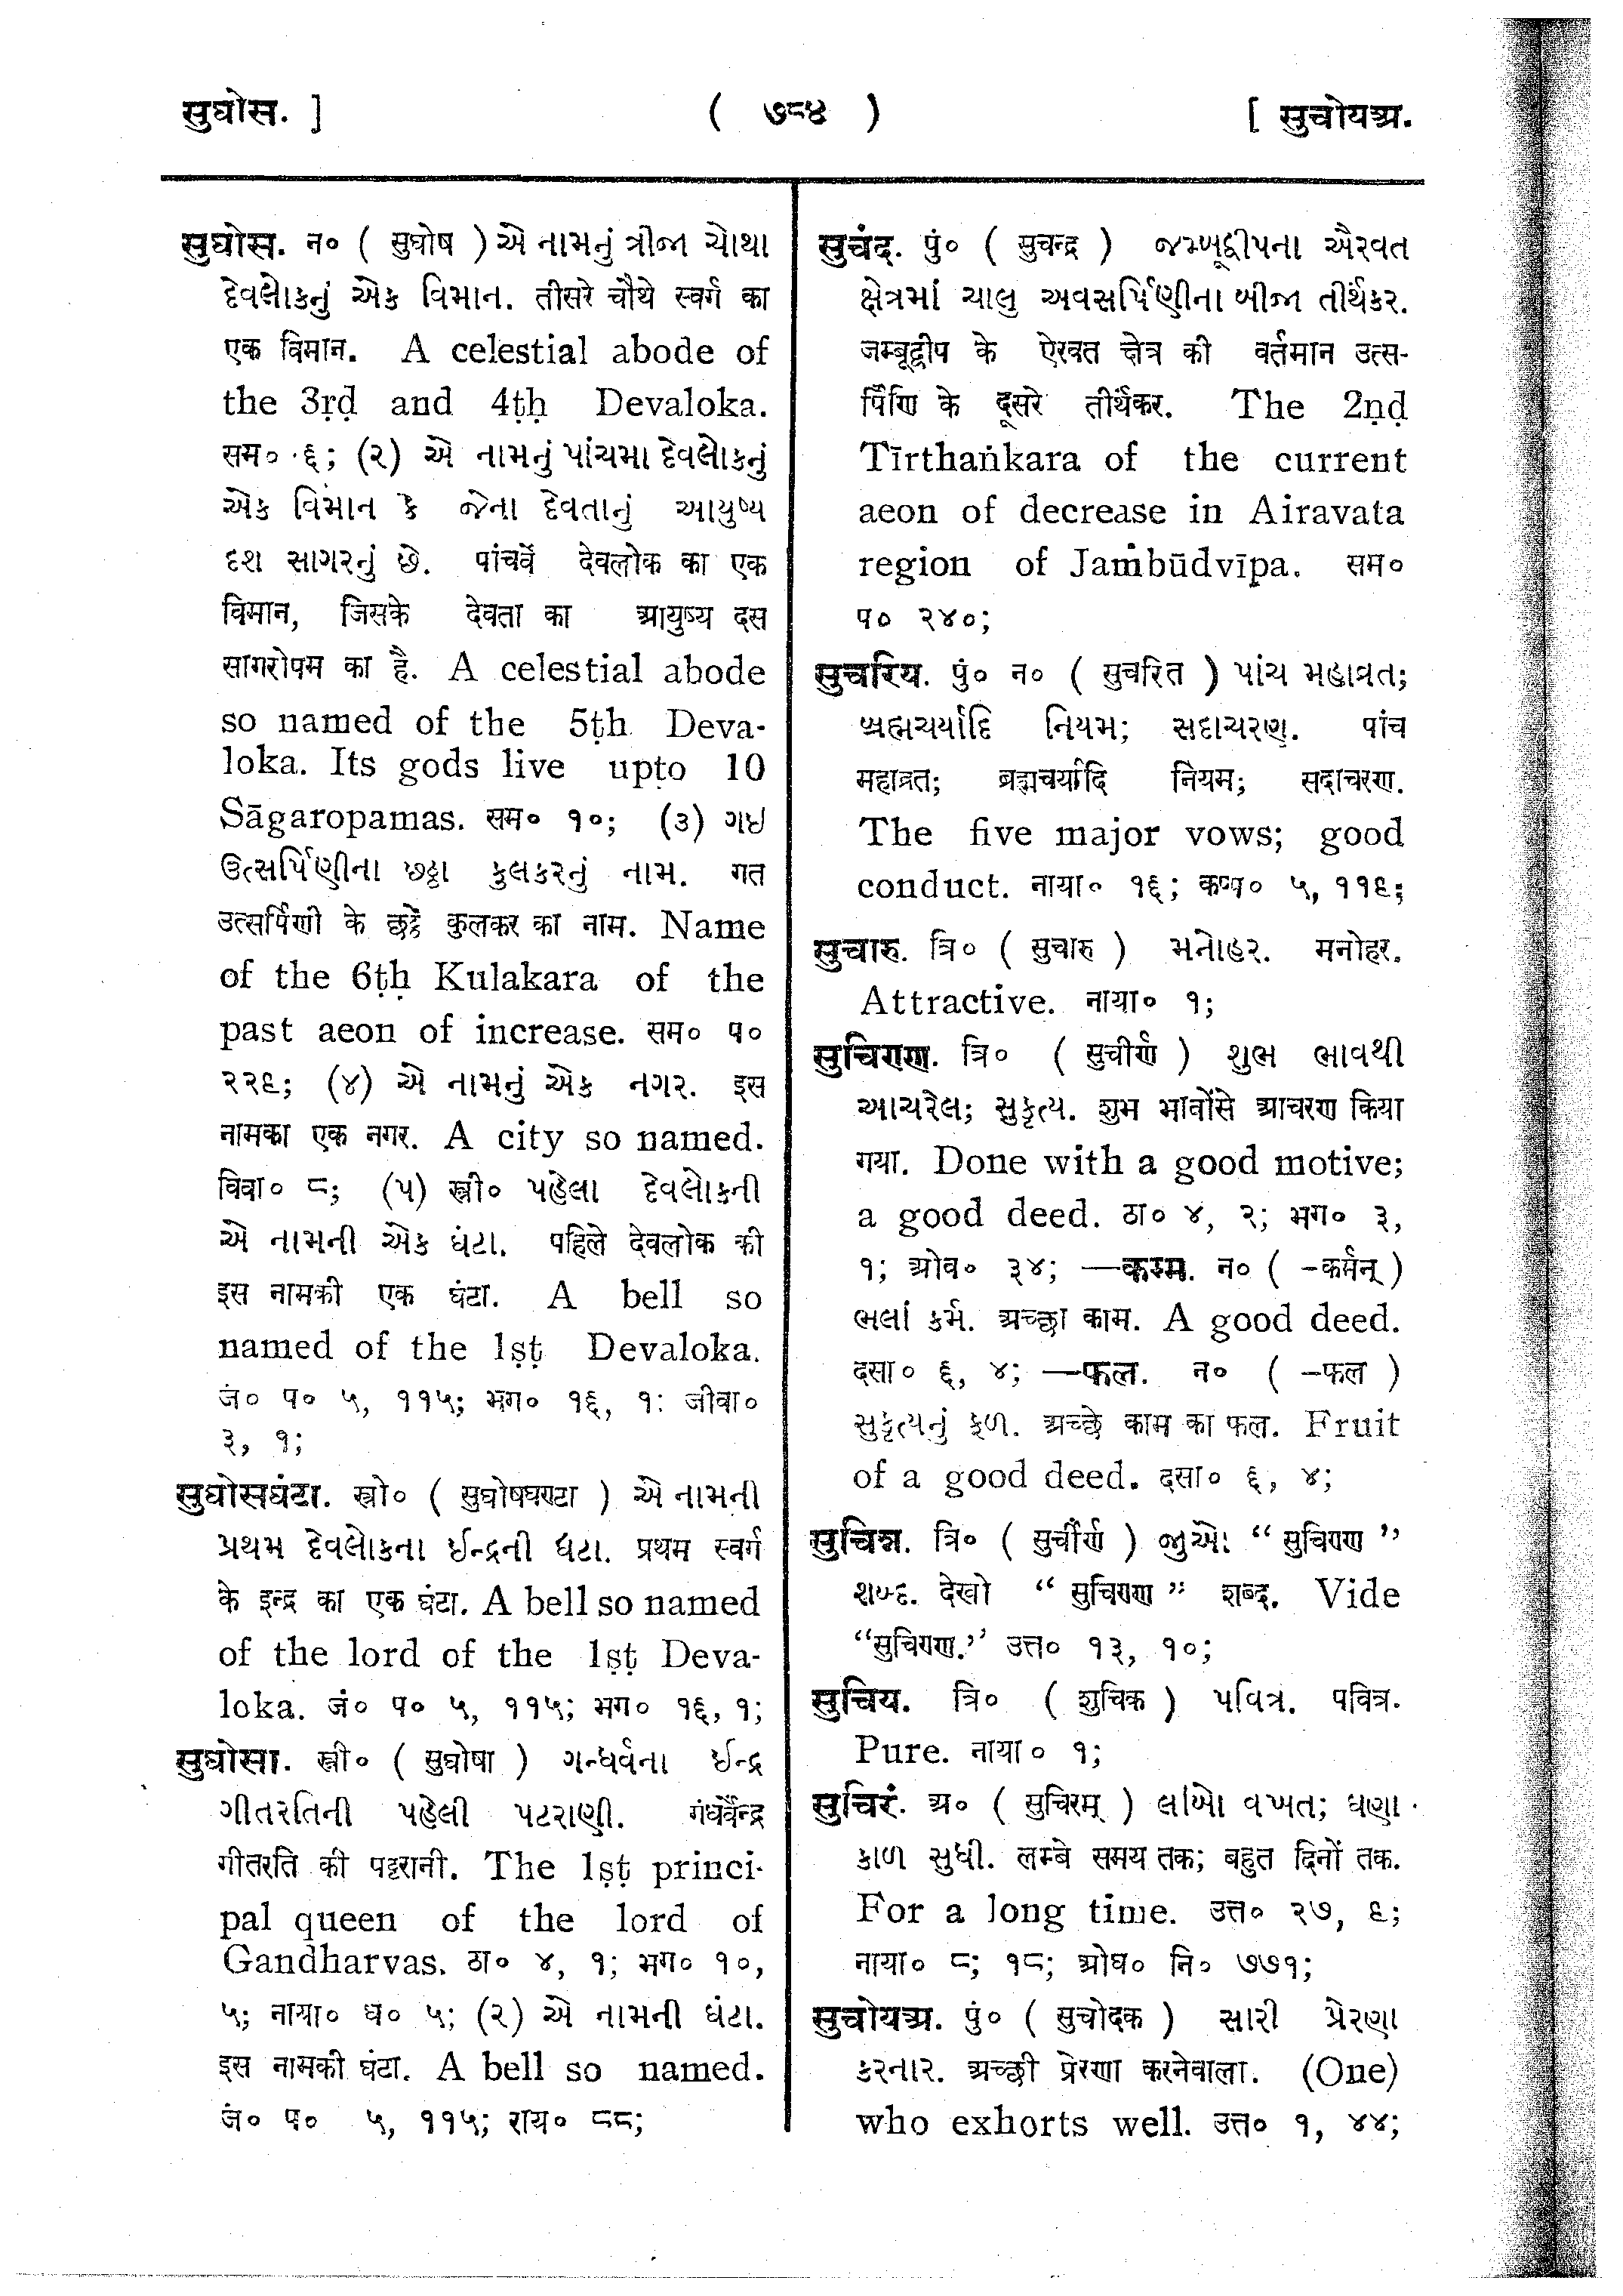 सुघोस. ]
( ७८४ )
[ सुचोयअ.
सुघोस. न० ( सुघोष ) એ નામનું ત્રીજા ચોથા
દેવલોકનું એક વિમાન. तीसरे चौथे स्वर्ग का
एक विमान. A celestial abode of
the 3ṛḍ and 4ṭḥ Devaloka.
सम० ६; (૨) એ નામનું પાંચમા દેવલોકનું
એક વિમાન કે જેના દેવતાનું આયુષ્ય
દશ સાગરનું છે. पांचवें देवलोक का एक
विमान, जिसके देवता का आयुष्य दस
सागरोपम का है. A celestial abode
so named of the 5ṭh Deva-
loka. Its gods live upto 10
Sāgaropamas. सम० १०; (૩) ગઇ
ઉત્સર્પિણીના છઠ્ઠા કુલકરનું નામ. गत
उत्सर्पिणी के छट्ठे कुलकर का नाम. Name
of the 6ṭḥ Kulakara of the
past aeon of increase. सम० प०
२२६; (૪) એ નામનું એક નગર. इस
नामका एक नगर. A city so named.
विवा० ८; (૫) स्त्री० પહેલા દેવલોકની
એ નામની એક ઘંટા. पहिले देवलोक की
इस नामकी एक घंटा. A bell so
named of the 1ṣṭ Devaloka.
जं० प० ५, ११५; भग० १६, १: जीवा०
३, १;
सुघोसघंटा. स्त्री० ( सुघोषघण्टा ) એ નામની
પ્રથમ દેવલોકના ઈન્દ્રની ઘંટા. प्रथम स्वर्ग
के इन्द्र का एक घंटा. A bell so named
of the lord of the 1ṣṭ Deva-
loka. जं० प० ५, ११५; भग० १६, १;
सुघोसा. स्त्री० ( सुघोषा ) ગન્ધર્વના ઈન્દ્ર
ગીતરતિની પહેલી પટરાણી. गंधर्वेन्द्र
गीतरति की पट्टरानी. The 1ṣṭ princi-
pal queen of the lord of
Gandharvas. ठा० ४, १; भग० १०,
५; नाया० ध० ५; (૨) એ નામની ઘંટા.
इस नामकी घंटा. A bell so named.
जं० प० ५, ११५; राय० ८८;
सुचंद. पुं० ( सुचन्द्र ) જમ્બૂદ્વીપના ઐરવત
ક્ષેત્રમાં ચાલુ અવસર્પિણીના બીજા તીર્થંકર.
जम्बूद्वीप के ऐरवत क्षेत्र की वर्तमान उत्स-
र्पिणि के दूसरे तीर्थंकर. The 2ṇḍ
Tīrthaṅkara of the current
aeon of decrease in Airavata
region of Jaṁbūdvīpa. सम०
प० २४०;
सुचरिय. पुं० न० ( सुचरित ) પાંચ મહાવ્રત;
બ્રહ્મચર્યાદિ નિયમ; સદાચરણ. पांच
महाव्रत; ब्रह्मचर्यादि नियम; सदाचरण.
The five major vows; good
conduct. नाया० १६; कप्प० ५, ११६;
सुचारु. त्रि० ( सुचारु ) મનોહર. मनोहर.
Attractive. नाया० १;
सुचिण्ण. त्रि० ( सुचीर्ण ) શુભ ભાવથી
આચરેલ; સુકૃત્ય. शुभ भावोंसे आचरण किया
गया. Done with a good motive;
a good deed. ठा० ४, २; भग० ३,
१; ओव० ३४; —कम्म. न० ( -कर्मन् )
ભલાં કર્મ. अच्छा काम. A good deed.
दसा० ६, ४; —फल. न० ( -फल )
સુકૃત્યનું ફળ. अच्छे काम का फल. Fruit
of a good deed. दसा० ६, ४;
सुचिन्न. त्रि० ( सुचीर्ण ) જુઓ: “ सुचिण्ण ”
શબ્દ. देखो “ सुचिण्ण ” शब्द. Vide
“सुचिण्ण.” उत्त० १३, १०;
सुचिय. त्रि० ( शुचिक ) પવિત્ર. पवित्र.
Pure. नाया० १;
सुचिरं. अ० ( सुचिरम् ) લાંબો વખત; ઘણા
કાળ સુધી. लम्बे समय तक; बहुत दिनों तक.
For a long time. उत्त० २७, ६;
नाया० ८; १८; ओघ० नि० ७७१;
सुचोयअ. पुं० ( सुचोदक ) સારી પ્રેરણા
કરનાર. अच्छी प्रेरणा करनेवाला. (One)
who exhorts well. उत्त० १, ४४;